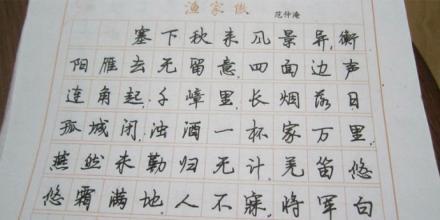 渔家傲
范仲淹
塞下秋来风景异,衡
阳雁去无留意.四面边声
连角起.千嶂里.长烟落日
孤城闭.浊酒一杯家万里.
燕然未勒归无计.羌笛悠
悠霜满地.人不寐.将军白